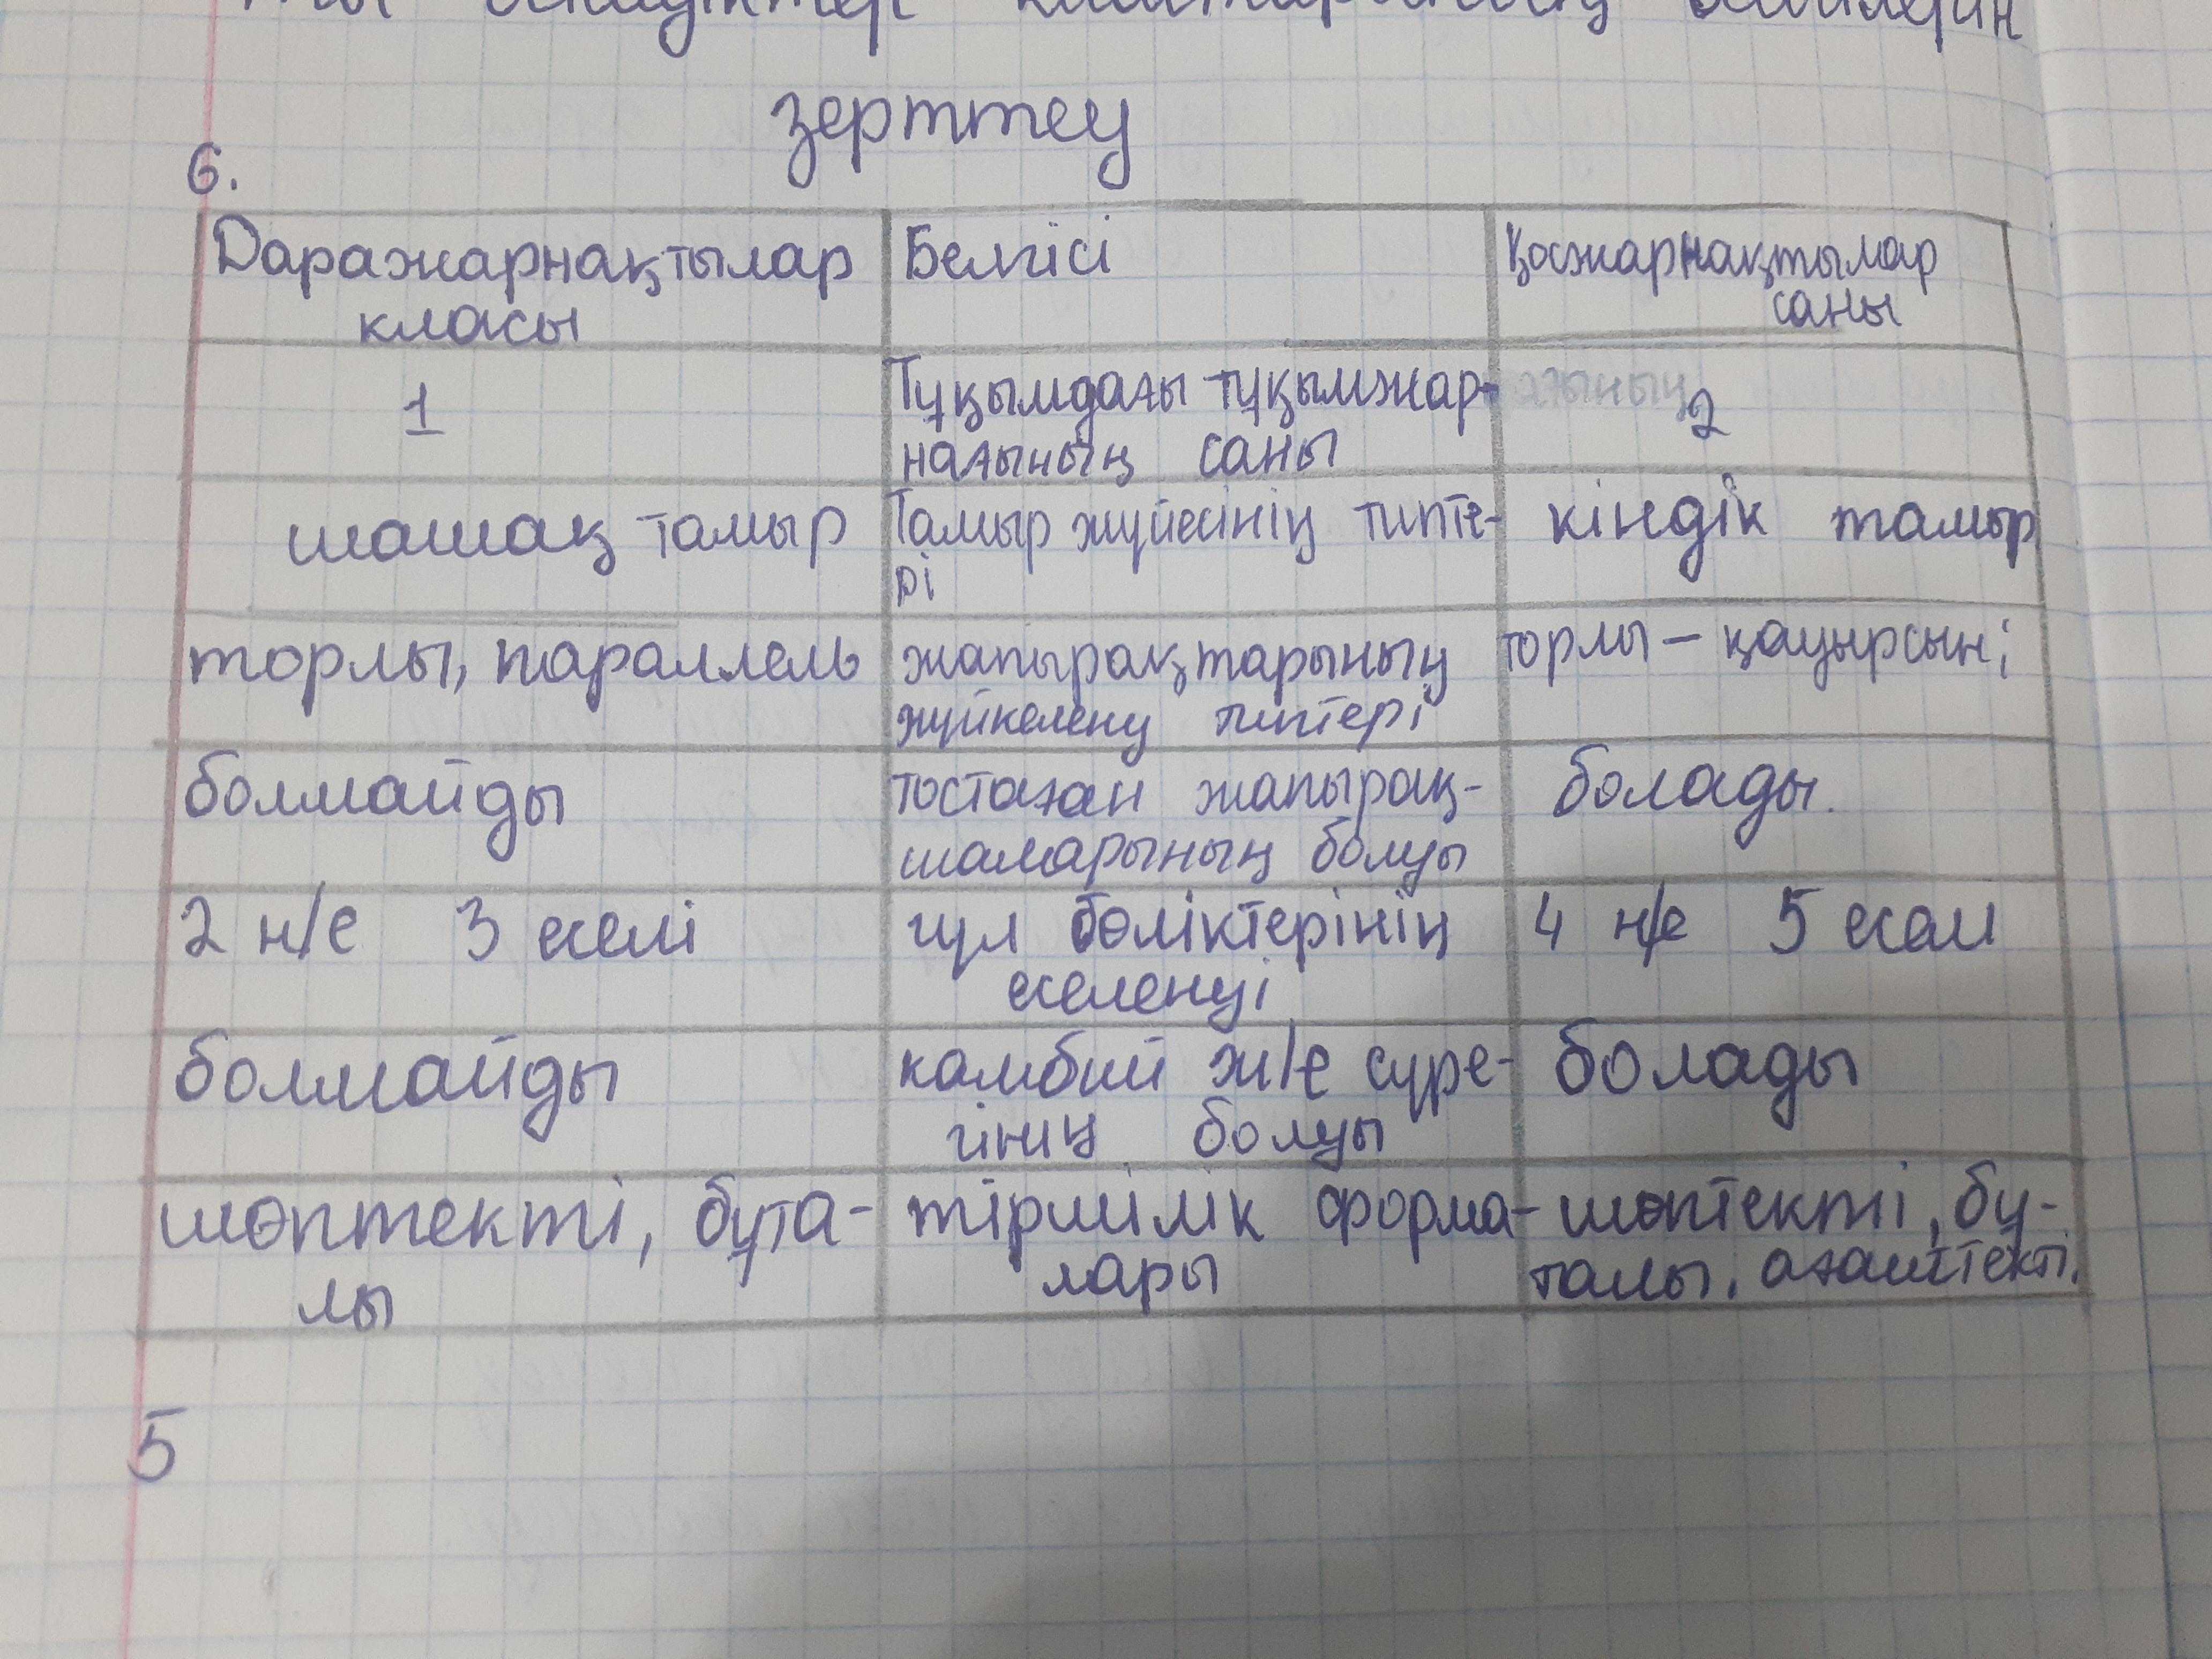 зерттеу
6.
Даражарнақтылар
класы
Белгісі
Қосжарнақтылар
саны
1
Тұқымдағы тұқымжар-
нағының саны
2
шашақ тамыр
Тамыр жүйесінің типте-
рі
кіндік тамыр
торлы, параллель
жапырақтарының
жүйкелену типтері
торлы – қауырсын;
болмайды
тостаған жапырақ-
шаларының болуы
болады.
2 н/е 3 еселі
гүл бөліктерінің
еселенуі
4 н/е 5 есел
болмайды
камбий ж/е сүре-
гінің болуы
болады
шөптекті, бұта-
лы
тіршілік форма-
лары
шөптекті, бұ-
талы, ағаштекті.
5